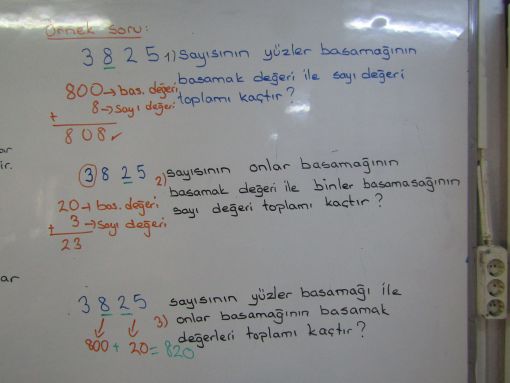 Örnek soru:
3825 1) sayısının yüzler basamağının
basamak değeri ile sayı değeri
toplamı kaçtır?
800 → bas. değeri
+ 8 → sayı değeri
808 ✓
3825 2) sayısının onlar basamağının
basamak değeri ile binler basamasağının
sayı değeri toplamı kaçtır?
20 → bas. değeri
+ 3 → sayı değeri
23
3825 3) sayısının yüzler basamağı ile
onlar basamağının basamak
değerleri toplamı kaçtır?
800 + 20 = 820
ar
ir.
ar